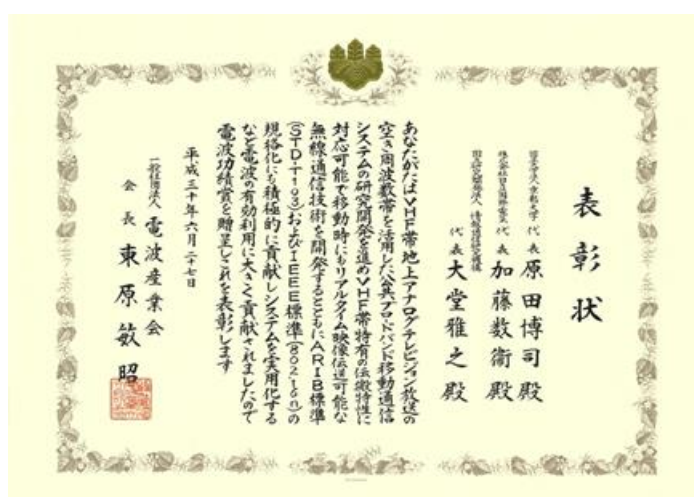 表彰状
国立大学法人 京都大学 代表 原田博司 殿
株式会社日立国際電気 代表 加藤数衞 殿
国立研究開発法人 情報通信研究機構 代表 大堂雅之 殿
あなたがたはVHF帯地上アナログテレビジョン放送の
空き周波数帯を活用した公共ブロードバンド移動通信
システムの研究開発を進めVHF帯特有の伝搬特性に
対応可能で移動時にもリアルタイム映像伝送可能な
無線通信技術を開発するとともにARIB標準
(STD-T103)およびIEEE標準(802.16n)の
規格化にも積極的に貢献しシステムを実用化する
など電波の有効利用に大きく貢献されましたので
電波功績賞を贈呈しこれを表彰します
平成三十年六月二十七日
一般社団法人 電波産業会
会長 東原敏昭